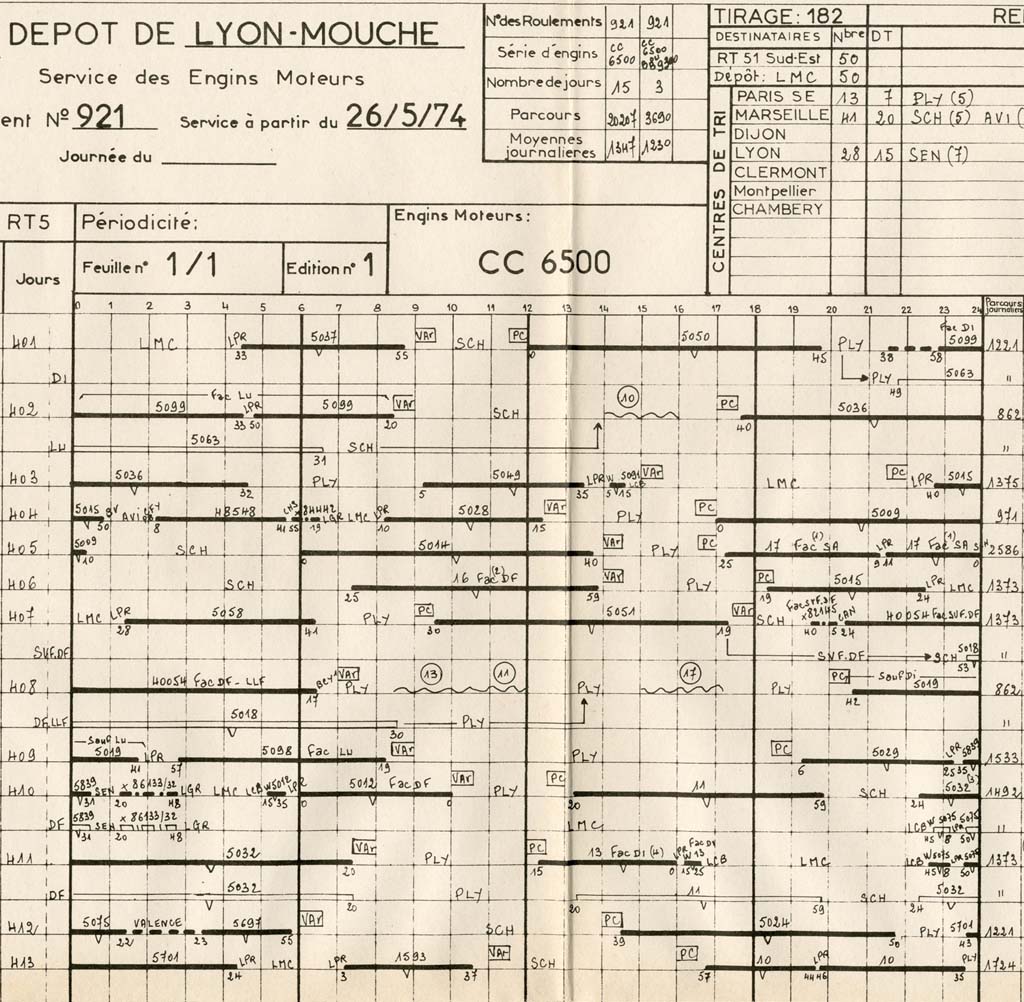 DEPOT DE LYON-MOUCHE
Service des Engins Moteurs
ent Nº 921 Service à partir du 26/5/74
Journée du
Nºdes Roulements 921 921
Série d'engins CC 6500 CC 6500
Nombre de jours 15 3
Parcours 20207 3690
Moyennes journalieres 1347 1230
TIRAGE: 182 RE
DESTINATAIRES Nbre DT
RT 51 Sud-Est 50
Dépôt: LMC 50
CENTRES DE TRI
PARIS SE 13 7 PLY (5)
MARSEILLE 41 20 SCH (5) AVI (
DIJON
LYON 28 15 SEN (7)
CLERMONT
Montpellier
CHAMBERY
RT5 Périodicité: Engins Moteurs:
CC 6500
Jours Feuille nº 1/1 Edition nº 1
0 1 2 3 4 5 6 7 8 9 10 11 12 13 14 15 16 17 18 19 20 21 22 23 24 Parcours journaliers
Fac DI
401 LMC LPR 5037 VAr SCH PC 5050 PLY 5099 1221
33 55 0 45 38 58
DI PLY 5063 "
49
Fac Lu
402 5099 LPR 5099 VAr SCH 10 PC 5036 862
33 50 20 40
LU 5063 SCH "
31
403 5036 PLY 5049 LPR W 5091 VAr LMC PC LPR 5015 1375
32 5 35 5 15 LCB 40
404 5015 BV AVI 48548 84442 LGR LMC LPR 5028 VAr PLY PC 5009 971
50 8 41 55 19 10 15 0
405 5009 SCH 5014 VAr PLY PC 17 Fac SA (1) LPR 17 Fac SA (1) 2586
10 0 40 25 9 11 0
406 SCH 16 Fac DF (2) VAr PLY PC 5015 LPR LMC 1373
25 59 19 24
407 LMC LPR 5058 PLY PC 5051 VAr SCH Fac SVF.DF x82145 CAN 40054 Fac SVF.DF 1373
28 41 30 19 40 5 24
SVF.DF SVF.DF SCH 5018 "
53
408 40054 Fac DF-LLF VAr PLY 13 11 PLY 17 PLY PC Sauf Di 5019 862
17 42
DF.LLF 5018 PLY "
30
Sauf Lu
409 5019 LPR 5098 Fac Lu VAr PLY PC 5029 LPR 5839 1533
41 57 19 6 25 35
410 5839 SEN x 86133/32 LGR LMC LCB W5012 LPR 5012 Fac DF VAr PLY PC 11 SCH 5032 1492
31 20 48 15 35 0 0 20 59 24
DF 5839 SEN x 86133/32 LGR LMC LCB W 5075 LPR 5075 "
31 20 48 45 8 50
411 5032 VAr PLY PC 13 Fac DI (4) LPR W 13 Fac DI LCB LMC LCB W5075 LPR 5075 1373
20 15 0 15 25 45 8 50
DF 5032 PLY 11 SCH 5032 "
20 20 59 24
412 5075 VALENCE 5697 VAr SCH PC 5024 PLY 5701 1221
22 23 55 39 50 43
413 5701 LPR LMC LPR 1593 VAr SCH PC 10 LPR 10 PLY 1724
24 3 37 57 44 46 35